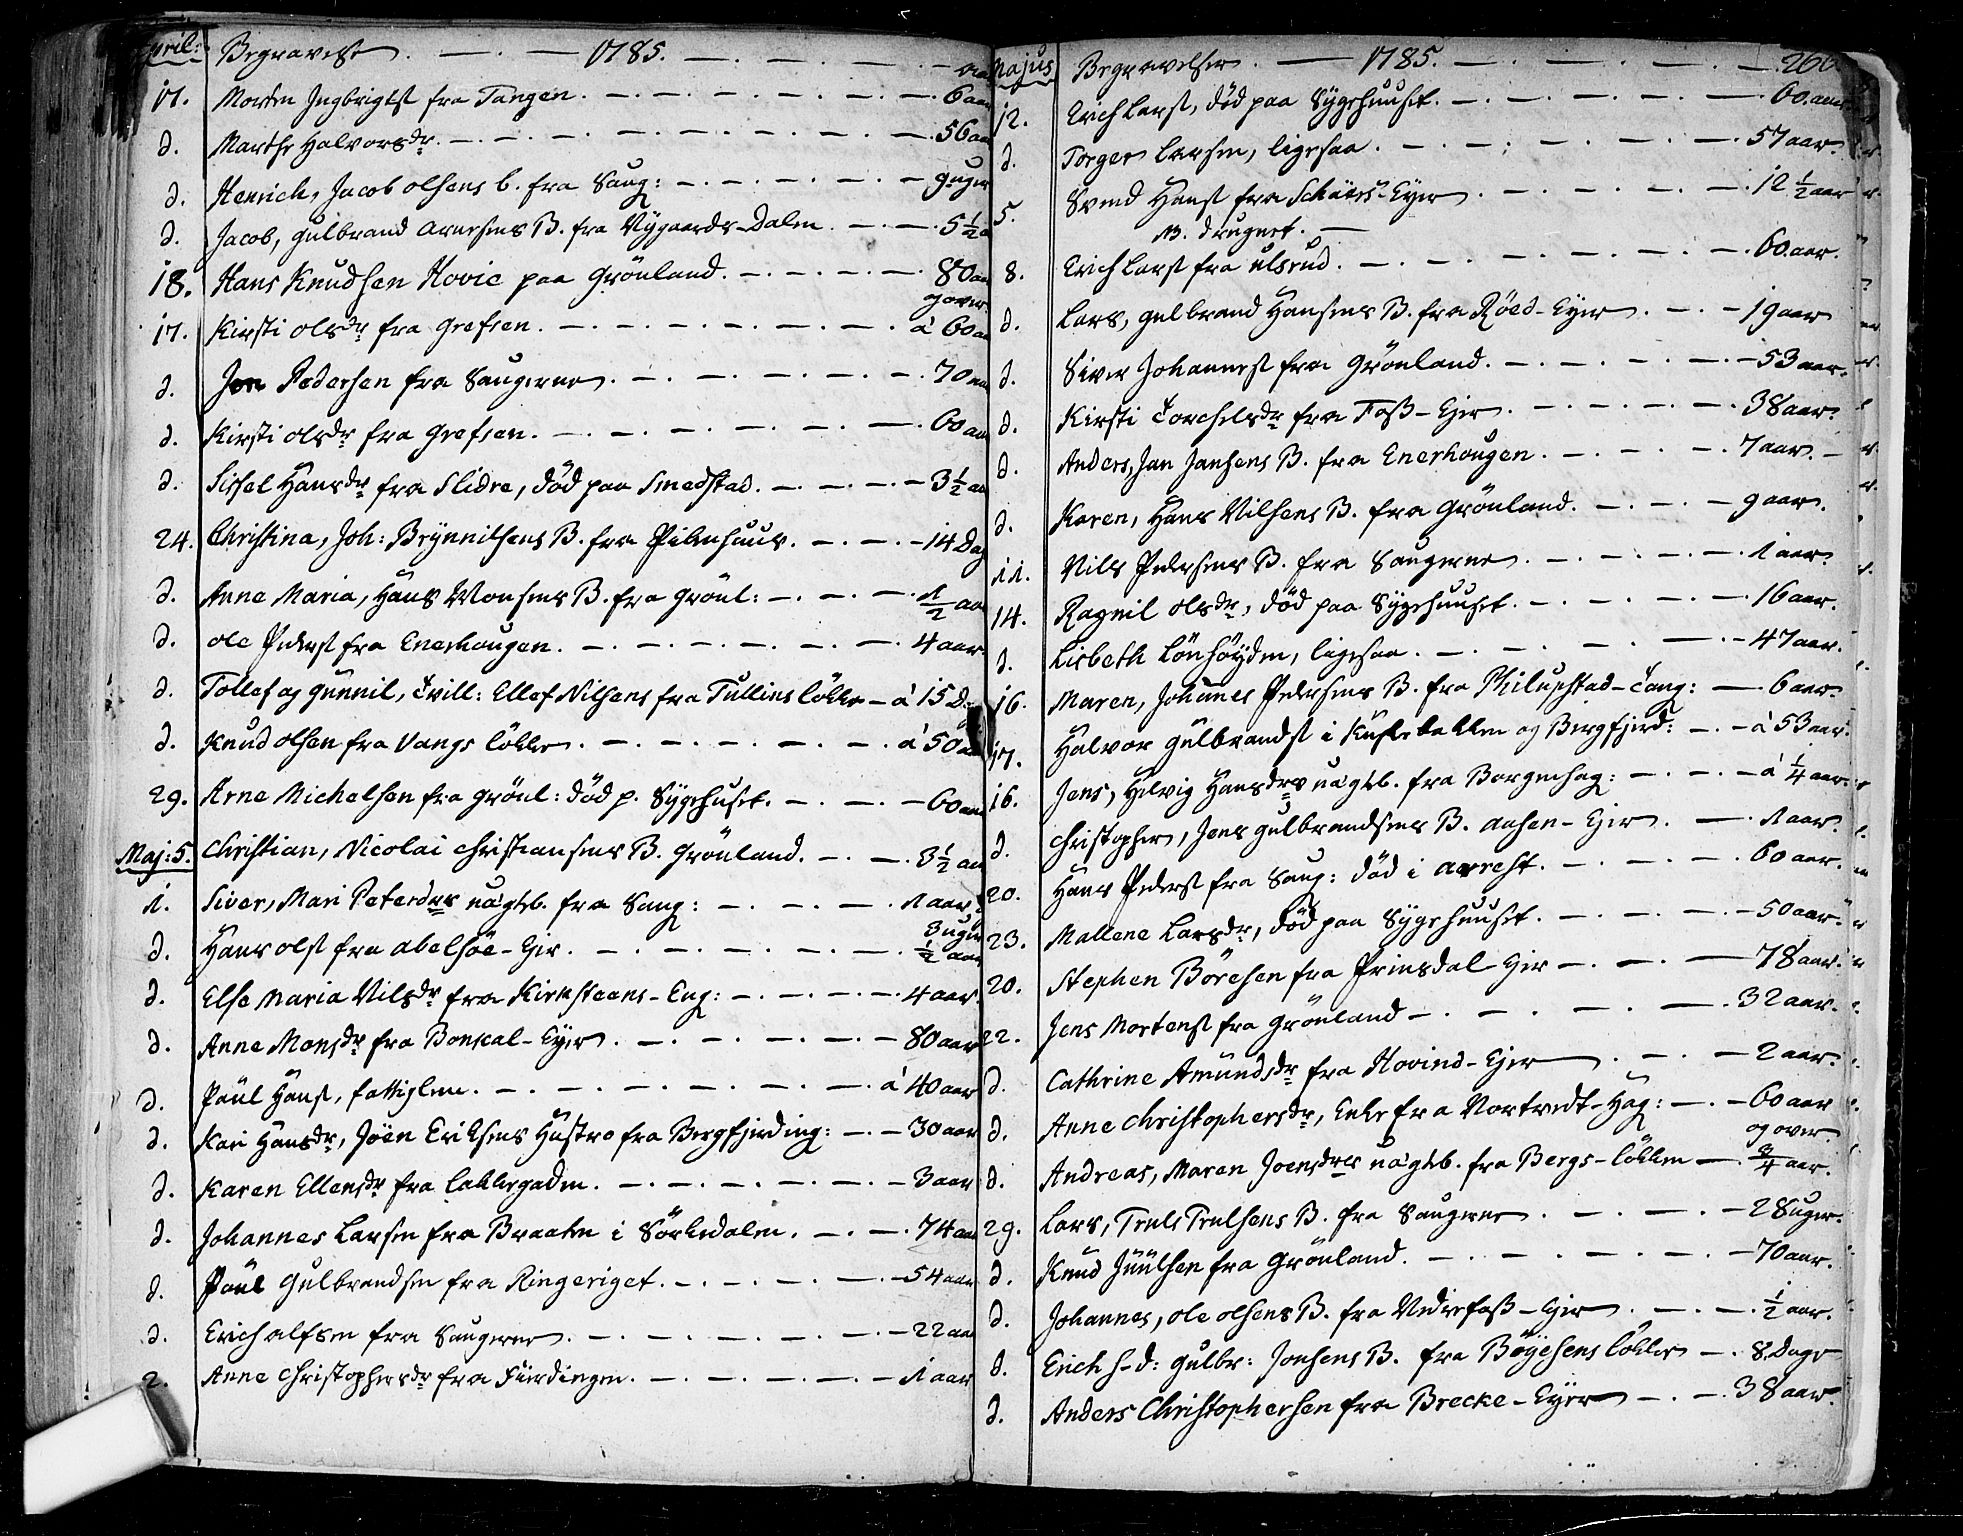 April: Begravelser 1785. aar
17. Morten Ingbrigtst fra Tangen. 6 aar
d. Marthe Halvorsdr. 56 aar
d. Henrich, Jacob olsens b. fra Saug: 9 uger
d. Jacob, gulbrand arnesens B. fra Nygaards-Dalen 5 1/2 a
18. Hans Knudsen Hovie paa Grönland. 80 aar
og over
17. Kirsti olsdr fra Grefsen. á 60 aar
d. Jon Pedersen fra Saugerne 70 aar
d. Kirsti olsdr fra Grefsen. 60 aar
d. Sissel Hansdr fra Slidre, död paa Smedstad. 3 1/2 aar
24. Christina, Joh: Brynnilsens B. fra Pibenhuus. 14 Dag
d. Anne Maria, Hans Monsens B. fra Grönl: 1/2 aar
d. ole Pederst fra Enerhougen. 4 aar
d. Tollef og Gunnil, tvill: Ellef Nilsens fra Tullins løkke á 15 D.
d. Knud olsen fra Vangs løkke á 50 aar
29. Arne Michelsen fra Grönl: död p. Sygehuset. 60 aar
Maj: 5. Christian, Nicolai Christiansens B. Grönland. 3 1/2 aar
1. Siver, Mari Petersdrs uægteb. fra Saug: 1 aar
3 uger
d. Hans olst fra abelsöe-Eier. 1/2 aar
d. Else Maria Nilsdr fra Kirksteens-Eng: 4 aar
d. Anne Monsdr fra Bonscal-Eyer 80 aar
d. Paul Hanst, fattiglem. á 40 aar
d. Kari Hansdr, Jöen Eriksens Hustro fra Bergfjerding: 30 aar
d. Karen Ellensdr fra Lakkegaden. 3 aar
d. Johannes Larsen fra Braaten i Sörkedalen. 74 aar
d. Paul Gulbrandsen fra Ringeriget. 54 aar
d. Erich alfsen fra Saugerne 22 aar
2. Anne Christophersdr fra Fierdingen. 1 aar
Majus Begravelser 1785. 266
12. Erich Larst, död paa Sygehuuset. 60. aar
d. Torger Larsen, ligesaa. 57 aar.
5. Svend Hanst fra Schöiers-Eyer 12 1/2 aar
NB. drugnet.
8. Erich Larst fra ulsrud. 60. aar.
d. Lars, gulbrand Hansens B. fra Röed-Eyer 19 aar
d. Siver Johannest fra Grönland. 53 aar.
d. Kirsti Torchelsdr fra Foss-Ejer 38 aar.
d. Anders, Jan Jansens B. fra Enerhougen. 7 aar.
d. Karen, Hans Nilsens B. fra Grönland. 9 aar.
11. Nils Pedersens B. fra Saugerne 1 aar.
14. Ragnil olsdr, död paa Sygehuuset. 16 aar.
d. Lisbeth Lönhöyden, ligesaa. 47 aar.
16. Maren, Johannes Pedersens B. fra Tang: 6 aar.
17. Halvor Gulbrandst i Kuslebakken og Bergfjerd: á 53 aar.
16. Jens, Helvig Hansdrs uægteb. fra Borgenhag: á 1/4 aar.
d. Christopher, Jens gulbrandsens B. aasen-Ejer. 1 aar.
20. Hans Pederst fra Saug: död i arrest. 60 aar.
23. Mallene Larsdr, död paa Sygehuuset. 50 aar.
20. Stephen Böresen fra Prinsdal Eier 78 aar.
22. Jens Mortenst fra Grönland 32 aar.
d. Cathrine Amundsdr fra Hovind-Ejer 2 aar.
d. Anne Christophersdr, Enke fra Nortvedt-Hag: 60 aar
og over.
d. Andreas, Maren Joensdrs uægteb. fra Bergs-løkken 3/4 aar.
29. Lars, Truls Trulsens B. fra Saugerne 28 uger.
d. Knud Juulsen fra Grönland. 70 aar.
d. Johannes, ole olsens B. fra Nedrefoss-Eier 1/2 aar.
d. Erich s-d: gulbr: Jonsens B. fra Böyesens løkke 8. Dage
d. Anders Christophersen fra Brecke-Eyer 38 aar.